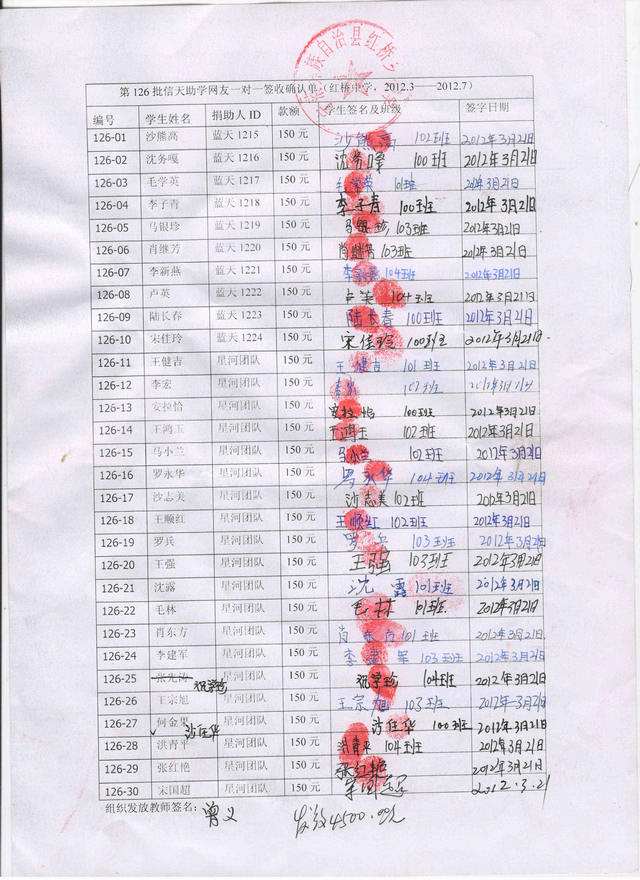 族自治县红桥
第126批信天助学网友一对一签收确认单（红桥中学，2012.3——2012.7）
编号 学生姓名 捐助人ID 款额 学生签名及班级 签字日期
126-01 沙熊高 蓝天1215 150元 沙熊高 102班 2012年3月21日
126-02 沈务嘎 蓝天1216 150元 沈务嘎 100班 2012年3月21日
126-03 毛学英 蓝天1217 150元 毛学英 101班 2012年3月21日
126-04 李子青 蓝天1218 150元 李子青 100班 2012年3月21日
126-05 马银珍 蓝天1219 150元 马银珍 103班 2012年3月21日
126-06 肖继芳 蓝天1220 150元 肖继芳 103班 2012年3月21日
126-07 李新燕 蓝天1221 150元 李新燕 104班 2012年3月21日
126-08 卢英 蓝天1222 150元 卢英 104班 2012年3月21日
126-09 陆长春 蓝天1223 150元 陆长春 100班 2012年3月21日
126-10 宋佳玲 蓝天1224 150元 宋佳玲 100班 2012年3月21日
126-11 王健吉 星河团队 150元 王健吉 101班 2012年3月21日
126-12 李宏 星河团队 150元 李宏 102班 2012年3月21日
126-13 安拉恰 星河团队 150元 安拉恰 100班 2012年3月21日
126-14 王鸿玉 星河团队 150元 王鸿玉 102班 2012年3月21日
126-15 马小兰 星河团队 150元 马小兰 102班 2012年3月21日
126-16 罗永华 星河团队 150元 罗永华 104班 2012年3月21日
126-17 沙志美 星河团队 150元 沙志美 102班 2012年3月21日
126-18 王顺红 星河团队 150元 王顺红 102班 2012年3月21日
126-19 罗兵 星河团队 150元 罗兵 103班 2012年3月21日
126-20 王强 星河团队 150元 王强 103班 2012年3月21日
126-21 沈露 星河团队 150元 沈露 101班 2012年3月21日
126-22 毛林 星河团队 150元 毛林 101班 2012年3月21日
126-23 肖东方 星河团队 150元 肖东方 101班 2012年3月21日
126-24 李建军 星河团队 150元 李建军 103班 2012年3月21日
126-25 张先涛 祝学珍 星河团队 150元 祝学珍 104班 2012年3月21日
126-26 王宗旭 星河团队 150元 王宗旭 103班 2012年3月21日
126-27 何金果 沙任华 星河团队 150元 沙任华 100班 2012年3月21日
126-28 洪青平 星河团队 150元 洪青平 104班 2012年3月21日
126-29 张红艳 星河团队 150元 张红艳 2012年3月21日
126-30 宋国超 星河团队 150元 2012.3.21
组织发放教师签名：曾义 发放4500.00元